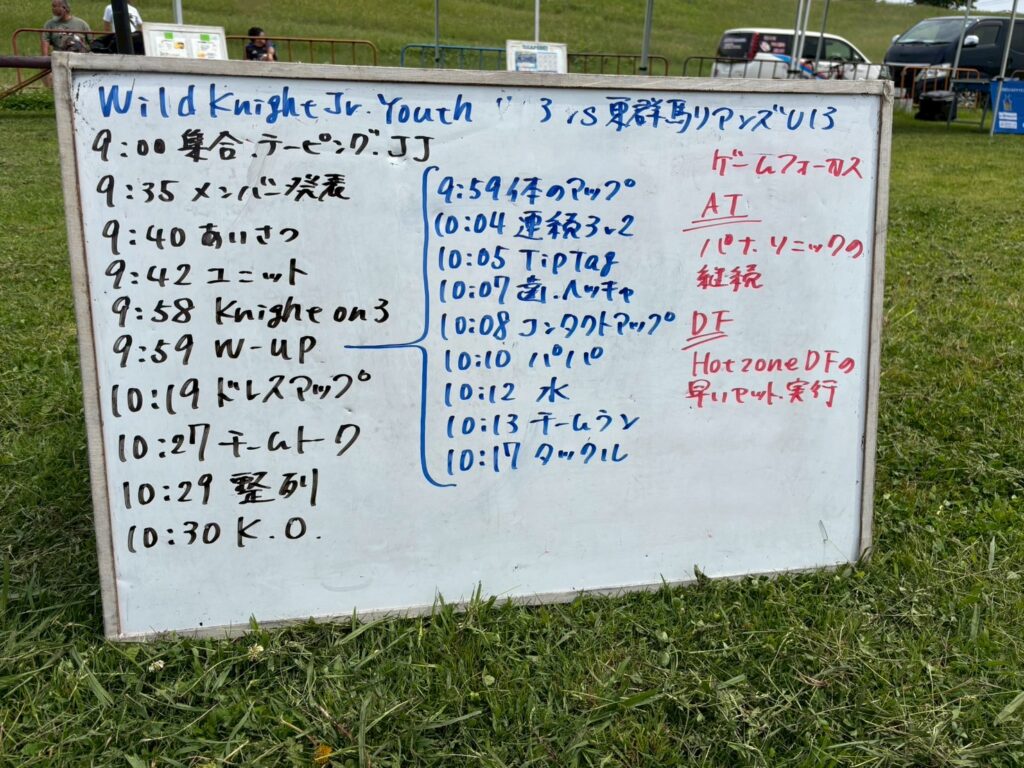 Wild Knight Jr. Youth 3 vs 東群馬リアンズU13
9:00 集合.テーピング.JJ
9:35 メンバー発表
9:40 あいさつ
9:42 ユニット
9:58 Knight on 3
9:59 W-UP
10:19 ドレスアップ
10:27 チームトーク
10:29 整列
10:30 K.O.
9:59 体のアップ
10:04 連続3v2
10:05 TipTag
10:07 歯.ヘッキャ
10:08 コンタクトアップ
10:10 パパ
10:12 水
10:13 チームラン
10:17 タックル
ゲームフォーカス
AT
パナソニックの
継続
DF
Hot zone DFの
早いセット実行